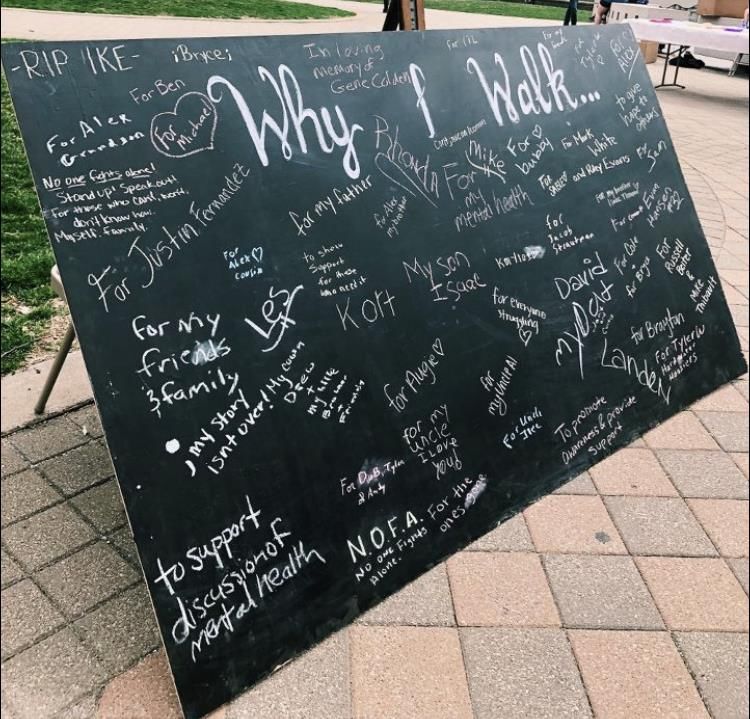 -RIP IKE-
¡Bryce¡
In loving
memory of
Gene Colden
Why I Walk...
For Ben
For Alex
Grandson
For
Michael
No one fights alone!
Stand up! Speak out!
For those who can't, won't,
don't know how.
Myself. Family.
For Justin Fernandez
for my father
Rhonda
for Alex
my brother
Mike
For
my
mental health
For
bubby
For Mark
White
and Riley Evans
to give
hope to
others
For Sam
For
Alex
Cousin
to show
Support
for those
who need it
Kort
My son
Isaac
for
Jacob
Stroutman
for everyone
struggling
David
my Dad
For Cole
for Bryce
For
Russell
Porter
&
Mike
Thibault
for my
friends
& family
Les
; my story
isn't over!
My Cousin
Drew
+
my life
for Augie
for
my Uncle Al
for Brayton
Landen
For Tyler W
for my
uncle
I Love
you!
for Uncle
To promote
Awareness & provide
Support
For Dad B, Tyler
& Andy
N.O.F.A.
NO ONE Fights
Alone.
For the
ones gone
to support
discussion of
mental health